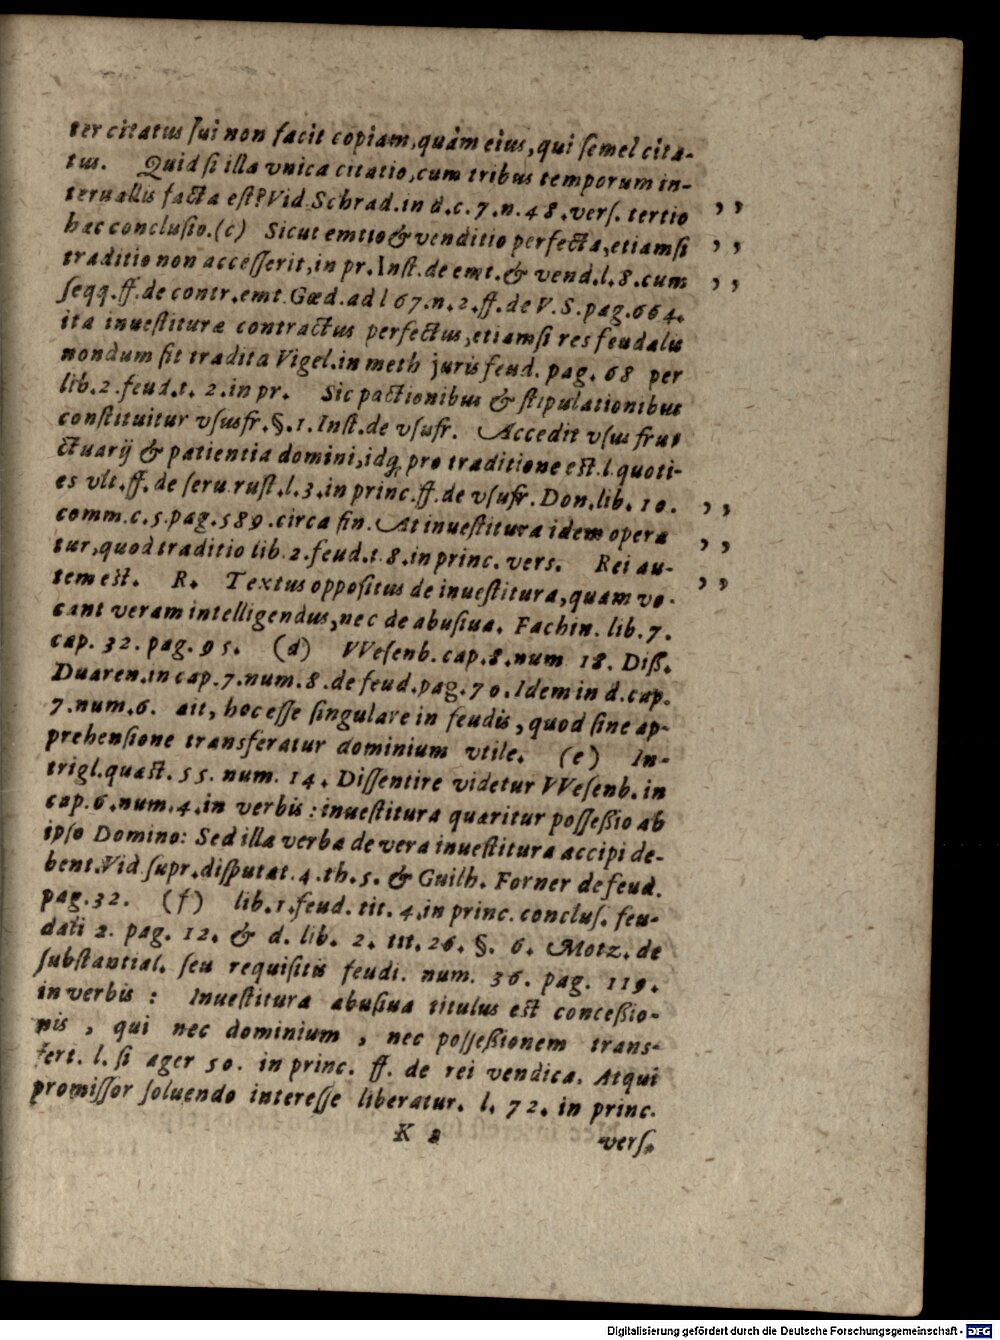 ter citatus ſui non facit copiam, quàm eius, qui ſemel cita-
tus. Quid ſi illa vnica citatio, cum tribus temporum in-
teruallis facta eſt? Vid. Schrad. in d. c. 7. n. 48. verſ. tertio ,,
hæc concluſio. (c) Sicut emtio & venditio perfecta, etiamſi ,,
traditio non acceſſerit, in pr. Inſt. de emt. & vend. l. 8. cum ,,
ſeqq. ff. de contr. emt. Gœd. ad l 67. n. 2. ff. de V. S. pag. 664.
ita inueſtituræ contractus perfectus, etiamſi res feudalis
nondum ſit tradita Vigel. in meth juris feud. pag. 68 per
lib. 2. feud. t. 2. in pr. Sic pactionibus & ſtipulationibus
conſtituitur vſusfr. §. 1. Inſt. de vſufr. Accedit vſus fru-
ctuarij & patientia domini, idq́; pro traditione eſt. l. quoti-
es vlt. ff. de ſeru. ruſt. l. 3. in princ. ff. de vſufr. Don. lib. 10. ,,
comm. c. 5. pag. 589. circa fin. At inueſtitura idem opera ,,
tur, quod traditio lib. 2. feud. t. 8. in princ. vers. Rei au- ,,
tem eſt. R. Textus oppoſitus de inueſtitura, quam vo-
cant veram intelligendus, nec de abuſiua. Fachin. lib. 7.
cap. 32. pag. 95. (d) VVeſenb. cap. 8. num 18. Diß.
Duaren. in cap. 7. num. 8. de feud. pag. 70. Idem in d. cap.
7. num. 6. ait, hoc eſſe ſingulare in feudis, quod ſine ap-
prehenſione transferatur dominium vtile. (e) In-
trigl. quæſt. 55. num. 14. Diſſentire videtur VVeſenb. in
cap. 6. num. 4. in verbis: inueſtitura quæritur poſſeßio ab
ipſo Domino: Sed illa verba de vera inueſtitura accipi de-
bent. Vid. ſupr. diſputat. 4. th. 5. & Guilh. Forner de feud.
pag. 32. (f) lib. 1. feud. tit. 4. in princ. concluſ. feu-
dali 2. pag. 12. & d. lib. 2. tit. 26. §. 6. Motz. de
ſubſtantial. ſeu requiſitis feudi. num. 36. pag. 119.
in verbis: Inueſtitura abuſiua titulus eſt conceßio-
nis, qui nec dominium, nec poſſeßionem trans-
fert. l. ſi ager 50. in princ. ff. de rei vendica. Atqui
promiſſor ſoluendo intereſſe liberatur. l. 72. in princ.
K 2 verſ.
Digitalisierung gefördert durch die Deutsche Forschungsgemeinschaft - DFG